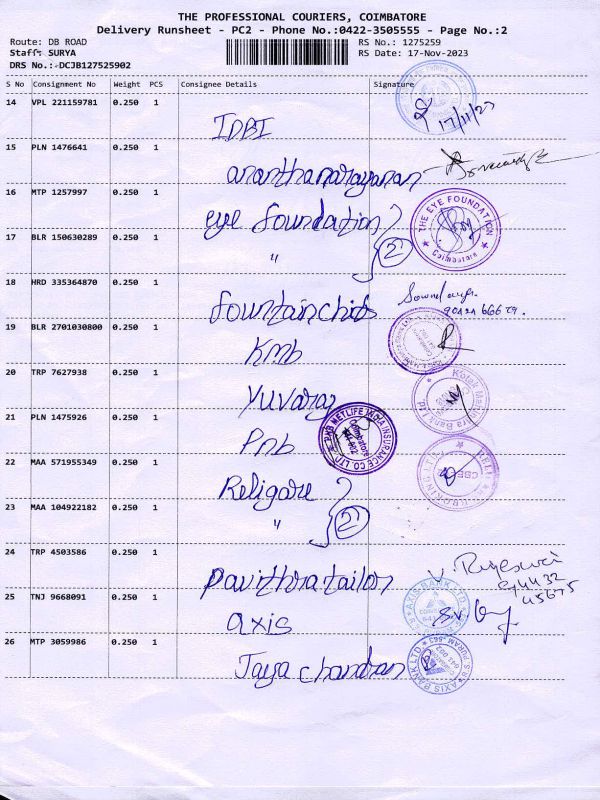 THE PROFESSIONAL COURIERS, COIMBATORE
Delivery Runsheet - PC2 - Phone No.:0422-3505555 - Page No.:2
Route: DB ROAD RS No.: 1275259
Staff: SURYA RS Date: 17-Nov-2023
DRS No.:-DCJB127525902
S No Consignment No Weight PCS Consignee Details Signature
14 VPL 221159781 0.250 1
IDBI 17/11/23
15 PLN 1476641 0.250 1
ananthanarayanan
16 MTP 1257997 0.250 1
eye foundation
THE EYE FOUNDATION Coimbatore
17 BLR 150630289 0.250 1
" 2
18 HRD 335364870 0.250 1
fountainchits
19 BLR 2701030800 0.250 1
Kmb
20 TRP 7627938 0.250 1
Yuvaraj
21 PLN 1475926 0.250 1
Pnb
PNB METLIFE INDIA INSURANCE CO. LTD Coimbatore
22 MAA 571955349 0.250 1
Religare
23 MAA 104922182 0.250 1
" 2
24 TRP 4503586 0.250 1
pavithra tailor
25 TNJ 9668091 0.250 1
axis
AXIS BANK LTD
26 MTP 3059986 0.250 1
Jaya chandran
AXIS BANK LTD